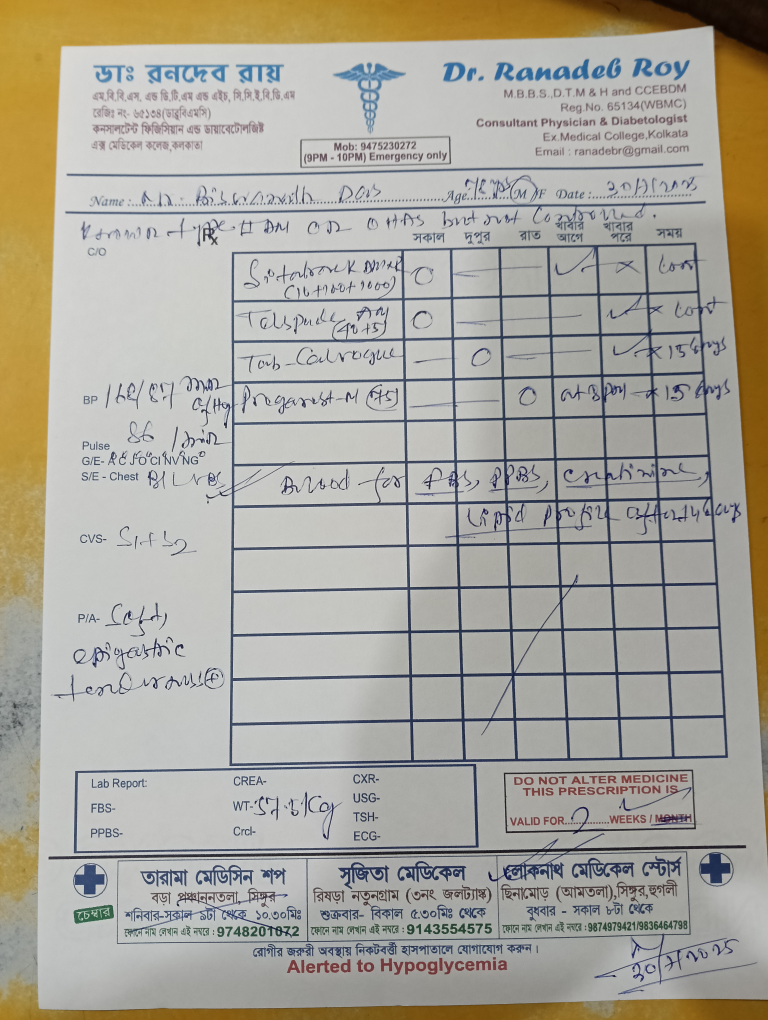 ডাঃ রনদেব রায়
এম.বি.বি.এস, এন্ড ডি.টি.এম এন্ড এইচ, সি.সি.ই.বি.ডি.এম
রেজিঃ নং- ৬৫১৩৪(ডাব্লুবিএমসি)
কনসালটেন্ট ফিজিসিয়ান এন্ড ডায়াবেটোলজিষ্ট
এক্স মেডিকেল কলেজ,কলকাতা
Mob: 9475230272
(9PM - 10PM) Emergency only
Dr. Ranadeb Roy
M.B.B.S.,D.T.M & H and CCEBDM
Reg.No. 65134(WBMC)
Consultant Physician & Diabetologist
Ex.Medical College,Kolkata
Email : ranadebr@gmail.com
Name : Mr. Biswanath Das Age M/F Date :
on OHAS but not controlled.
C/O Rx সকাল দুপুর রাত খাবার আগে খাবার পরে সময়
(10+100+1000) O — ✓ × cont
(40+5) O — ✓ × cont
Tab — O — ✓ × 15 days
BP after — O × 15 days
Pulse 86 /min
G/E-
S/E - Chest
Blood for FBS, PPBS, creatinine,
Lipid profile days
CVS- S1+S2
P/A- Soft,
epigastric
tenderness ⊕
Lab Report: CREA- CXR-
FBS- WT- Kg USG-
PPBS- Crcl- TSH-
ECG-
DO NOT ALTER MEDICINE
THIS PRESCRIPTION IS
VALID FOR 2 WEEKS / MONTH
চেম্বার
তারামা মেডিসিন শপ
বড়া পঞ্চাননতলা, সিঙ্গুর
শনিবার-সকাল ৯টা থেকে ১০.৩০মিঃ
ফোনে নাম লেখান এই নম্বরে : 9748201072
সৃজিতা মেডিকেল
রিষড়া নতুনগ্রাম (৩নং জলট্যাঙ্ক)
শুক্রবার- বিকাল ৫.৩০মিঃ থেকে
ফোনে নাম লেখান এই নম্বরে : 9143554575
লোকনাথ মেডিকেল স্টোর্স
ছিনামোড় (আমতলা),সিঙ্গুর,হুগলী
বুধবার - সকাল ৮টা থেকে
ফোনে নাম লেখান এই নম্বরে - 9874979421/9836464798
রোগীর জরুরী অবস্থায় নিকটবর্ত্তী হাসপাতালে যোগাযোগ করুন।
Alerted to Hypoglycemia